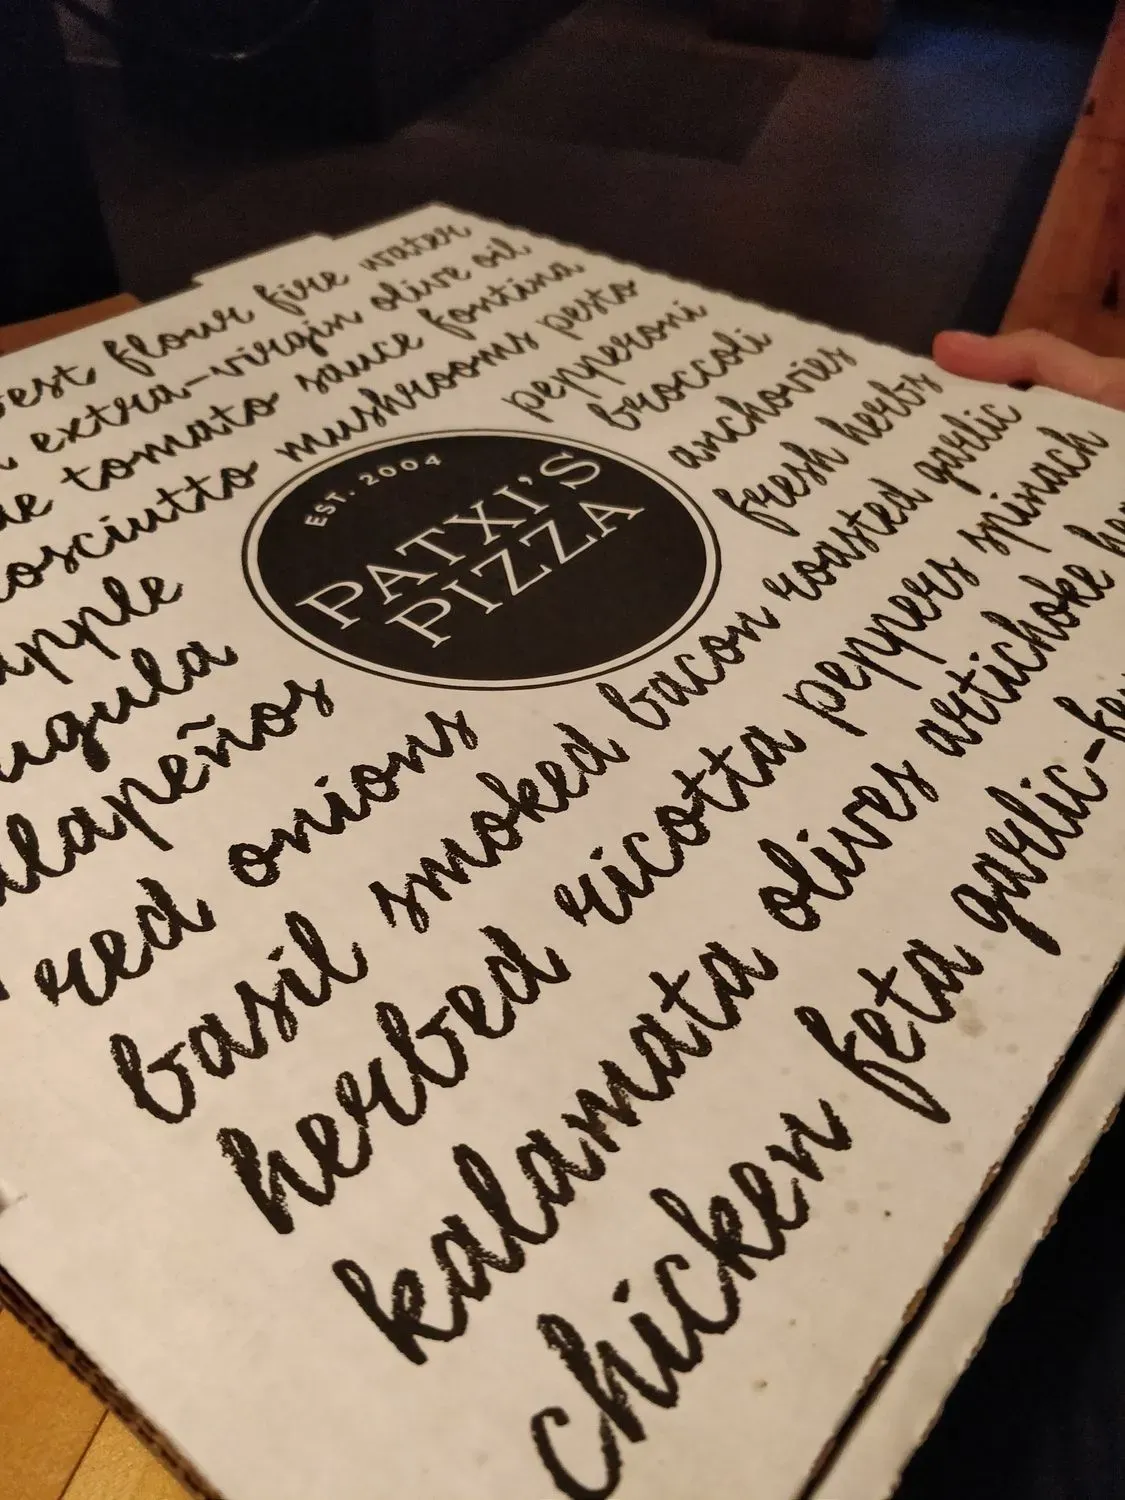 est flour fire water
extra-virgin olive oil
de tomato sauce fontina
osciutto mushrooms pesto
apple pepperoni
ugula broccoli
alapeños anchovies
red onions fresh herbs
EST. 2004
PATXI'S
PIZZA
basil smoked bacon roasted garlic
herbed ricotta peppers spinach
kalamata olives artichoke he
chicken feta garlic-fe